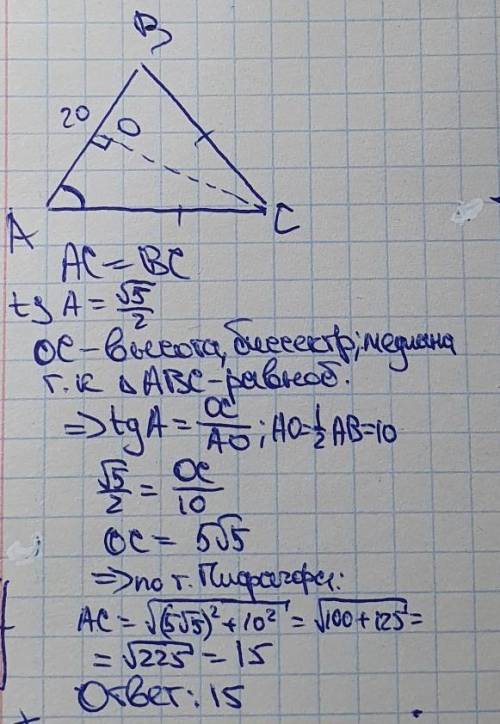 B
20
O
A
C
AC = BC
tg A = √5/2
OC – высота, биссектр; медиана
т.к △ABC – равноб.
=> tgA = OC/AO ; AO = 1/2 AB = 10
√5/2 = OC/10
OC = 5√5
=> по т. Пифагора:
AC = √((5√5)² + 10²) = √(100 + 125) =
= √225 = 15
Ответ: 15